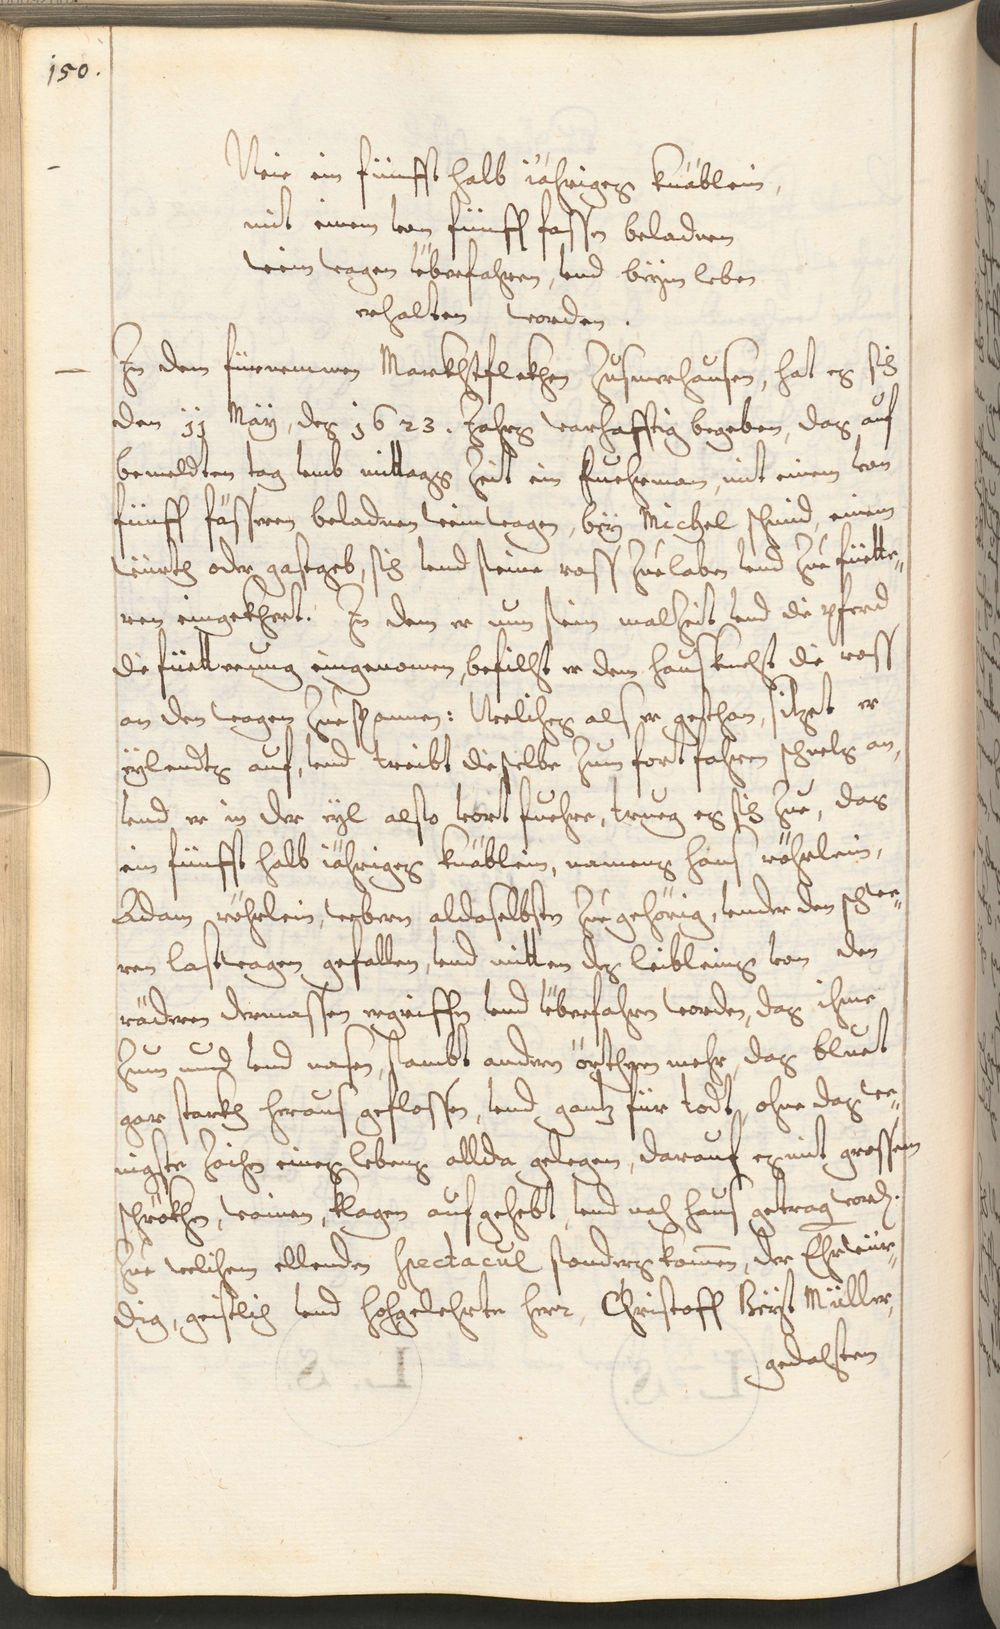 150.
Wie ein fünfft halb jähriges knäblein,
mit einem von fünff fassen beladnen
wein wagen überfahren, vnd beÿm leben
erhalten worden.
In dem fürnemmen Markhtflekhen Zusmerhausen, hat es sich
den 11 Maÿ, des 1623. Jahrs warhafftig begeben, das auf
bemeldten tag vmb mittags Zeit ein fuehrman, mit einem von
fünff fässeren beladnen wein wagen, beÿ Michel schmid, einem
würth oder gastgeb, sich vnd seine ross Zue laben vnd Zue füette„
ren eingekhert. In dem er nun sein malzeit vnd die pferd
die füetterung eingenomen, befilht er dem hausknecht die ross
an den wagen Zue spannen: Welches als er gethan, sitzet er
eÿlendts auf, vnd treibt dieselbe Zum fortfahren schnels an,
vnd er in der eÿl also vort fuehre, trueg es sich Zue, das
ein fünfft halb jähriges knäblein, namens hans röhrlein,
Adam röhrlein, webern aldaselbsten Zue gehörig, vnder den schwe„
ren lastwagen gefallen, vnd mitten des leibleins von den
räderen dermassen ergriffen vnd überfahren worden, das ihme
Zum mund vnd nasen, sambt andern örtheren mehr, das bluet
gar starkh heraus geflossen, vnd gantz für todt, ohne das we„
nigste Zeichen eines lebens allda gelegen, darauf es mit grossem
schrökhen, wainen, klagen aufgehebt, vnd nach haus getragen worden.
Zue welchem ellenden spectacul sonders komen, der Ehrwür„
dig, geistlich vnd hochgelehrte herr, Christoff Müller,
gedachten